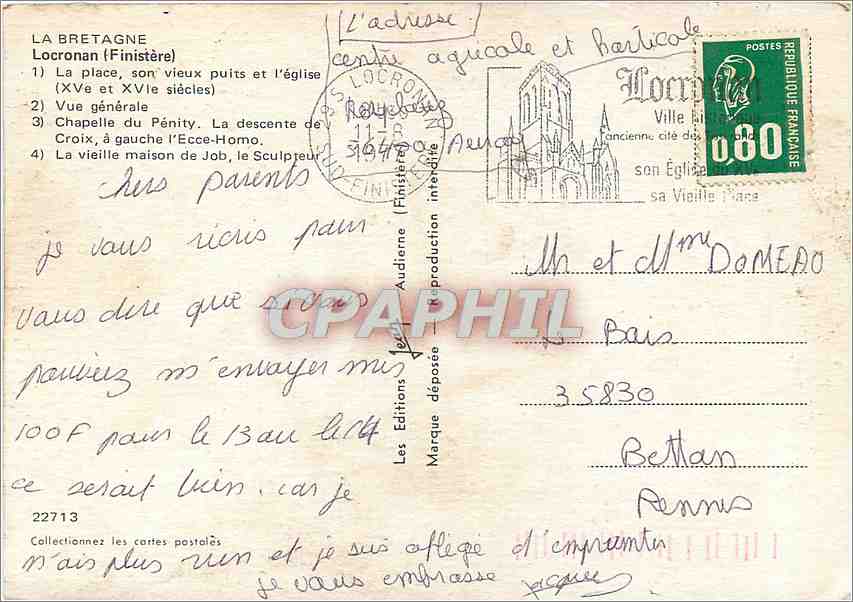 LA BRETAGNE
Locronan (Finistère)
1) La place, son vieux puits et l'église
(XVe et XVIe siécles)
2) Vue générale
3) Chapelle du Pénity. La descente de
Croix, à gauche l'Ecce-Homo.
4) La vieille maison de Job, le Sculpteur
L'adresse
centre agricole et horticole
LOCRONAN
11-8
FINISTERE
Locronan
Ville
ancienne cité des
son Eglise du XVe
sa Vieille Place
POSTES
REPUBLIQUE FRANÇAISE
0,80
chers parents
je vous récris pour
vous dire que si vous
pouviez m'envoyer mis
100F pour le 13 ou le 14
ce serait bien. car je
n'ais plus rien et je suis obligé d'emprunter
je vous embrasse
Jacques
22713
Collectionnez les cartes postales
Les Editions Jean Audierne (Finistère)
Marque déposée — Reproduction interdite
Mr et Mme DOMEAO
Bais
35830
Betton
Rennes
CPAPHIL